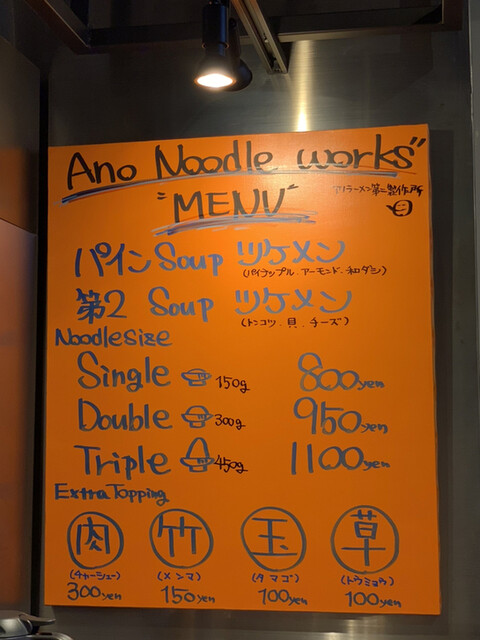 Ano Noodle works"
"MENU"
アノラーメン第二製作所
パイン Soup ツケメン
(パイナップル.アーモンド.和ダシ)
第2 Soup ツケメン
(トンコツ.貝.チーズ)
Noodle size
Single 150g 800yen
Double 300g 950yen
Triple 450g 1100yen
Extra Topping
肉 竹 玉 草
(チャーシュー) (メンマ) (タマゴ) (トウミョウ)
300yen 150yen 100yen 100yen